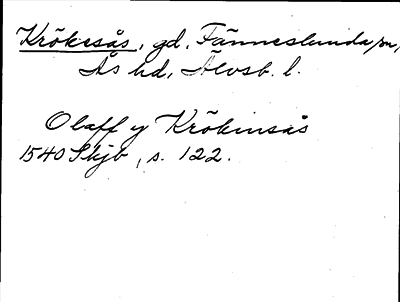 Krökesås, gd, Fänneslunda sn,
Ås hd, Älvsb. l.
Olaff y Krökinsås
1540 Skjb, s. 122.